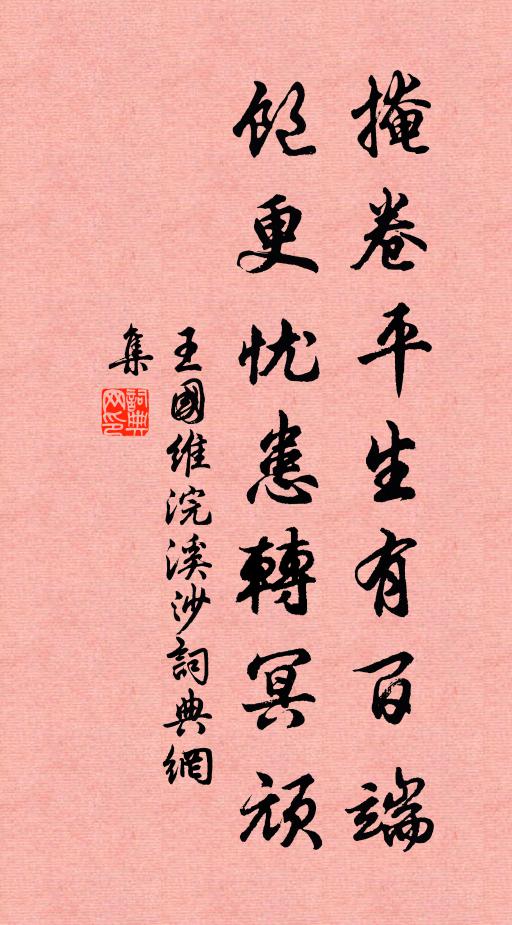 掩卷平生有百端
飽更忧患轉冥頑
王國維浣溪沙詞典網
集
詞典網印